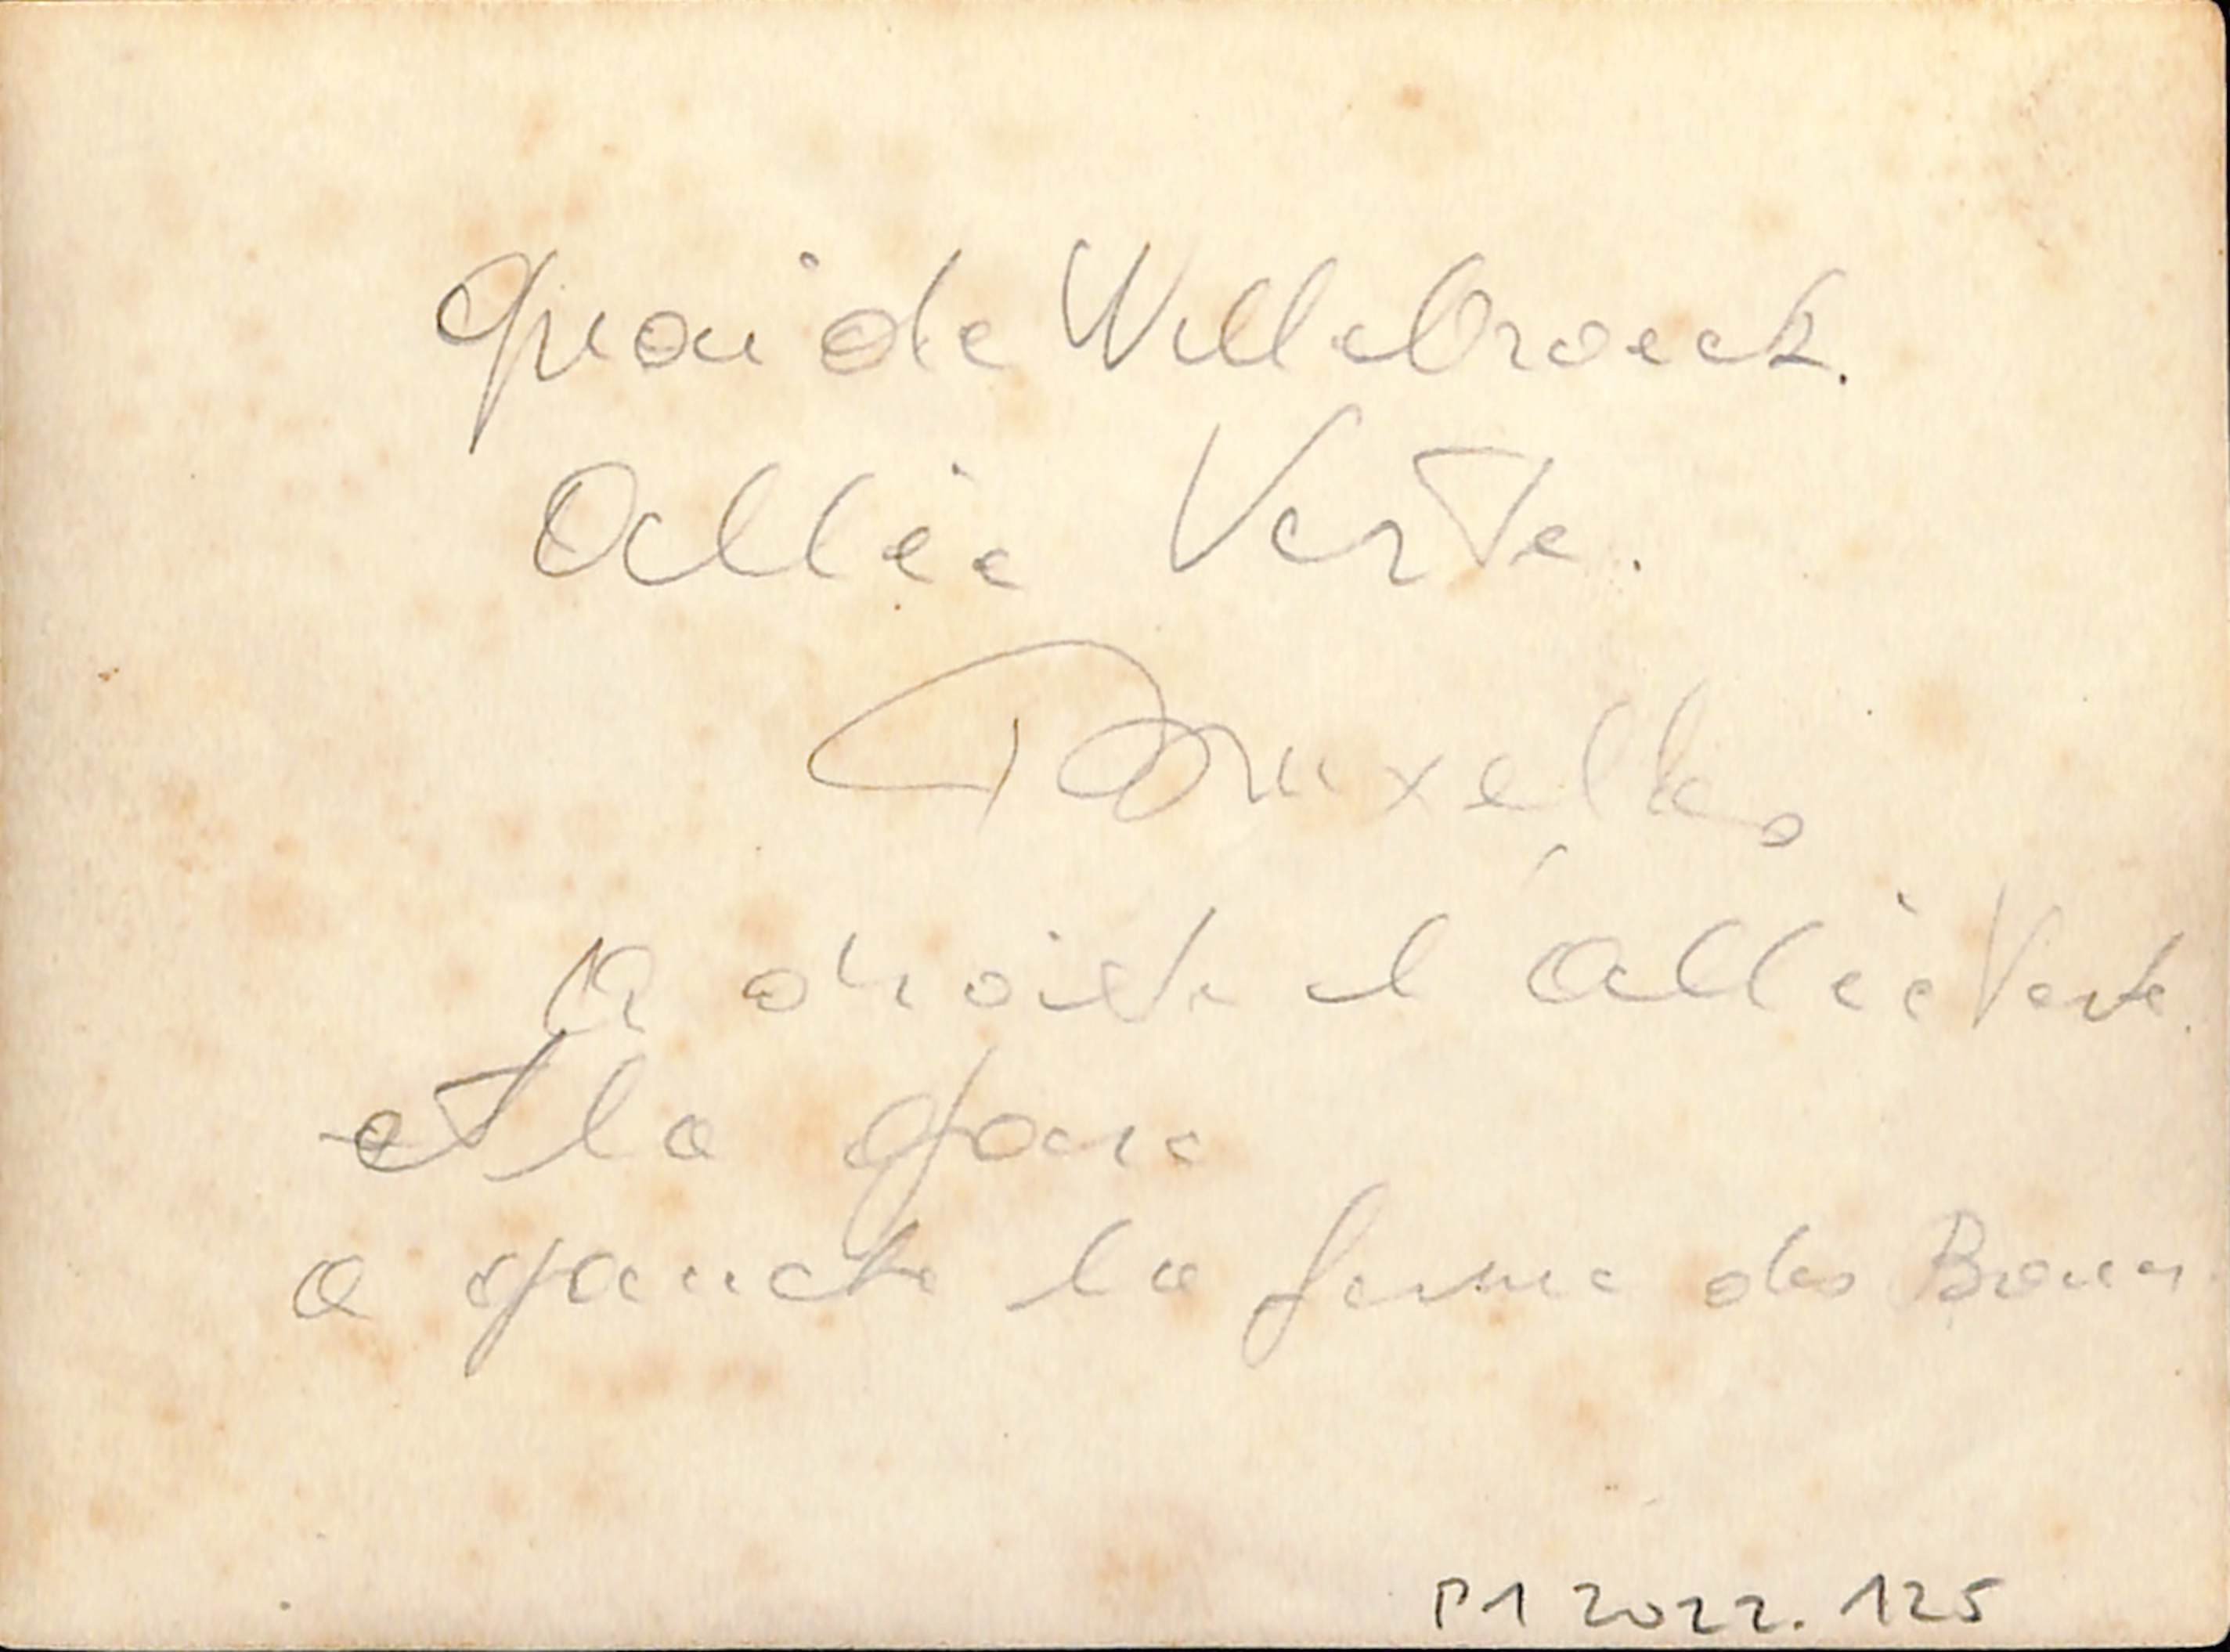 Quai de Willebroeck.
Allée Verte.
Bruxelles
A droite l'Allée Verte.
et la gare
a gauche la ferme des Boues
P1 2022.125